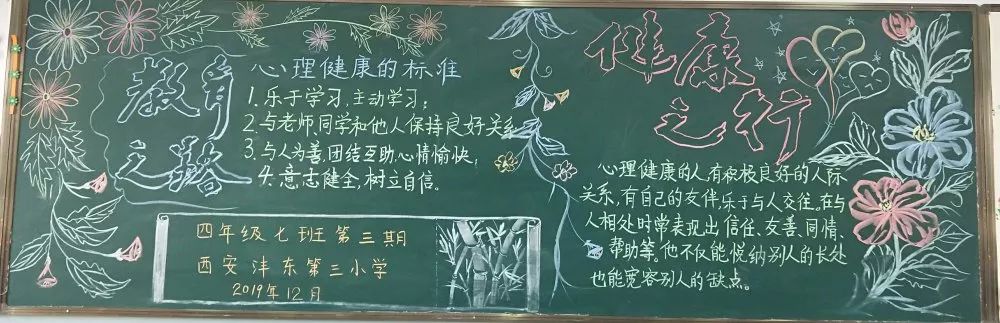 教育
之路
心理健康的标准
1.乐于学习,主动学习;
2.与老师、同学和他人保持良好关系
3.与人为善,团结互助,心情愉快;
4.意志健全,树立自信。
四年级七班第三期
西安沣东第三小学
2019年12月
健康
之行
心理健康的人,有积极良好的人际
关系,有自己的友伴,乐于与人交往,在与
人相处时常表现出信任、友善、同情、
帮助等,他不仅能悦纳别人的长处
也能宽容别人的缺点。